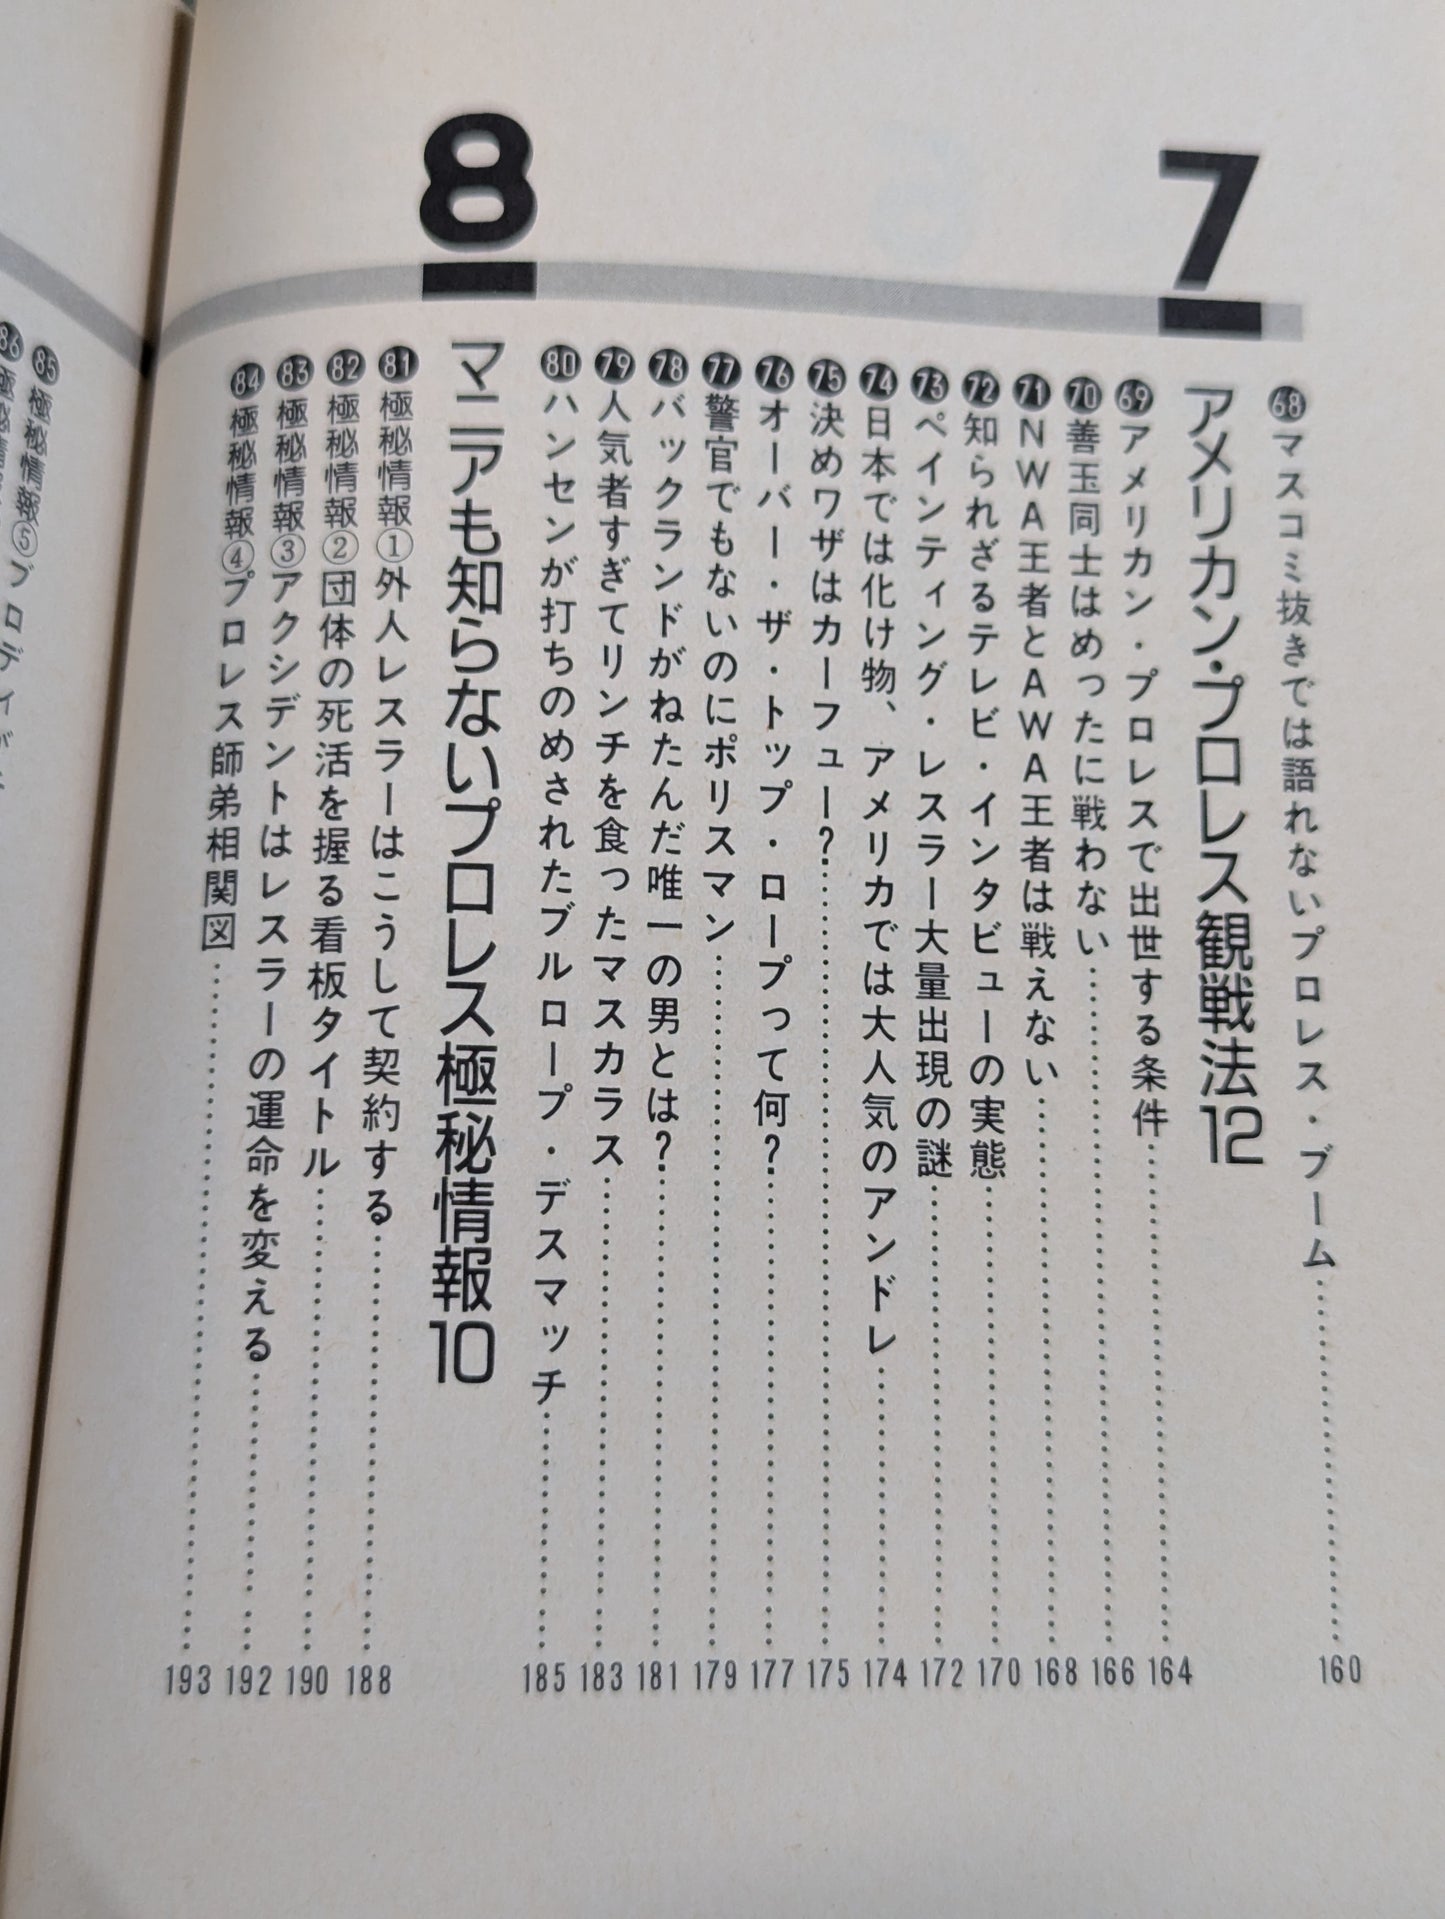 68 マスコミ抜きでは語れないプロレス・ブーム……160
7
アメリカン・プロレス観戦法12
69 アメリカン・プロレスで出世する条件……164
70 善玉同士はめったに戦わない……166
71 NWA王者とAWA王者は戦えない……168
72 知られざるテレビ・インタビューの実態……170
73 ペインティング・レスラー大量出現の謎……172
74 日本では化け物、アメリカでは大人気のアンドレ……174
75 決めワザはカーフュー?……175
76 オーバー・ザ・トップ・ロープって何?……177
77 警官でもないのにポリスマン……179
78 バックランドがねたんだ唯一の男とは?……181
79 人気者すぎてリンチを食ったマスカラス……183
80 ハンセンが打ちのめされたブルロープ・デスマッチ……185
8
マニアも知らないプロレス極秘情報10
81 極秘情報①外人レスラーはこうして契約する……188
82 極秘情報②団体の死活を握る看板タイトル……190
83 極秘情報③アクシデントはレスラーの運命を変える……192
84 極秘情報④プロレス師弟相関図……193
85 極秘情報⑤ブロディ
86 極秘情